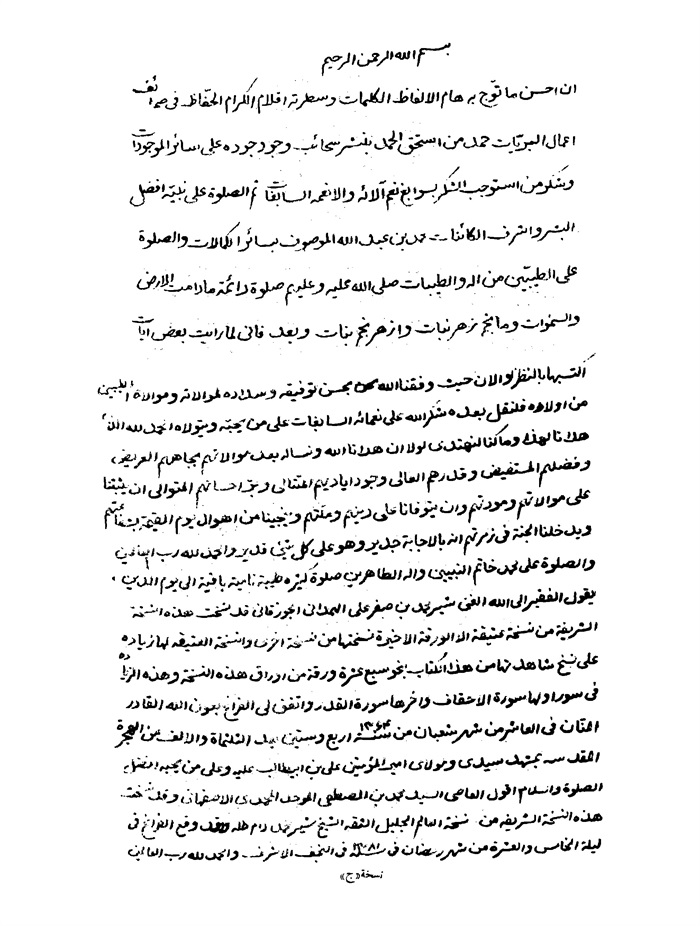 بسم الله الرحمن الرحيم
ان احسن ما توّج به هام الالفاظ الكلمات وسطرته اقلام الكرام الحفّاظ فى صحائف
اعمال البريّات حمد من استحق الحمد بنشر سحائب وجود جوده على سائر الموجودات
وشكر من استوجب الشكر بسوابغ نعم آلائه والانعمه السابغات ثم الصلوة على نبيّه افضل
البشر واشرف الكائنات محمد بن عبد الله الموصوف بسائر الكمالات والصلوة
على الطيبين من اله والطيبات صلى الله عليه وعليهم صلوة دائمة مادامت الارض
والسموات وما نجم نزهر نبات وازهر نجم بنات وبعد فانى لما رايت بعض آيات
اكتبها بالنظر والان حيث وفقنا الله بحسن توفيقه وسداده لموالاته وموالاة الطيبين
من اولاده فلنقل بعده شكر الله على نعمائه السابغات على من يحبّه ويتولاه الحمد لله الذى
هدانا لهذا وما كنا لنهتدى لولا ان هدانا الله ونساله بعد موالاتهم بجاههم العريض
وفضلهم المستفيض وقدرهم العالى وجود اياديهم المتتالى وبرّ احسانهم المتوالى ان يثبتنا
على موالاتهم ومودتهم وان يتوفانا على دينهم وملّتهم وينجينا من اهوال يوم القيمة بشفاعتهم
ويدخلنا الجنة فى زمرتهم انه بالاجابة جدير وهو على كل شئ قدير والحمد لله رب العالمين
والصلوة على محمد خاتم النبيين واله الطاهرين صلوة كثيره طيبة نامية باقية الى يوم الدين
يقول الفقير الى الله الغنى شير محمد بن صفر على الهمدانى الجورقانى قد نسخت هذه النسخة
الشريفة من نسخة عتيقة الا الورقة الاخيرة نسختها من نسخة اخرى والنسخة العتيقه لها زياده
على نسخ شاهدتها من هذا الكتاب بنحو سبع عشرة ورقة من اوراق هذه النسخة وهذه الزيادة
فى سور اولها سورة الاحقاف واخرها سورة القدر واتفق لى الفراغ بعون الله القادر
المنّان فى العاشر من شهر شعبان من سنة ۱۳۶۴ اربع وستين بعد الثلثمأة والالف من الهجرة
المقدسه بمشهد سيدى ومولاى امير المؤمنين على بن ابيطالب عليه وعلى من يحبه افضل
الصلوة والسلام اقول العاصى السيد محمد بن المصطفى الموحد المحمدى الاصفهانى وقد نسخت
هذه النسخة الشريفه من نسخة العالم الجليل الثقه الشيخ شير محمد دام ظله وقد وقع الفراغ فى
ليلة الخامس والعشرة من شهر رمضان فى سنة ۱۳۸۱ فى النجف الاشرف والحمد لله رب العالمين
نسخة «ج»